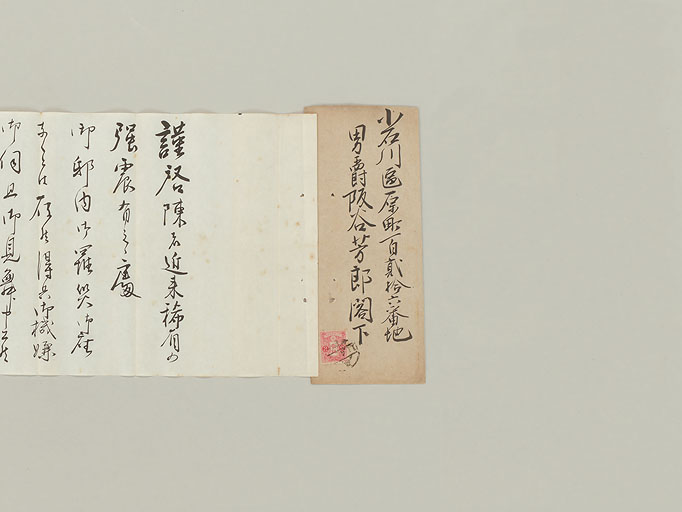 小石川區原町百貳拾六番地
男爵阪谷芳郎閣下
謹啓陳者近来稀有の
強震有之候處
御邸内御罹災御座
なく候得共御機嫌
御伺旦御見舞申上候